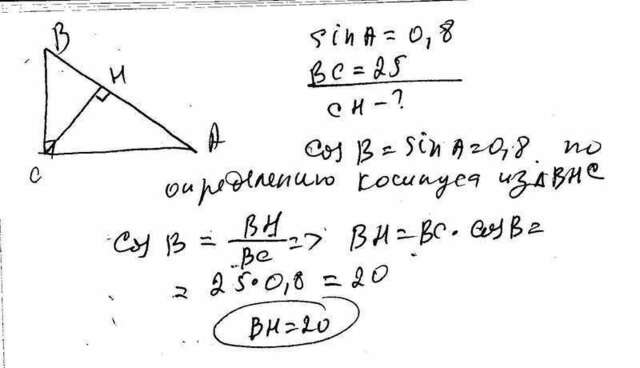 B
H
A
C
sin A = 0,8
BC = 25
CH - ?
cos B = sin A = 0,8. по
определению косинуса из △BHC
cos B = BH/BC => BH = BC · cos B =
= 25 · 0,8 = 20
BH = 20